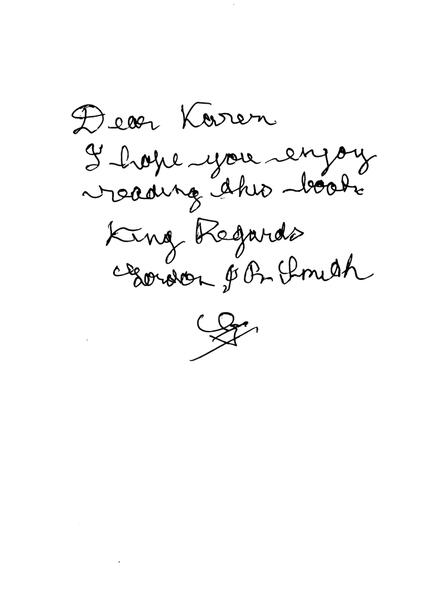 Dear Karen
I hope you enjoy
reading this book
King Regards
Gordon J B Smith